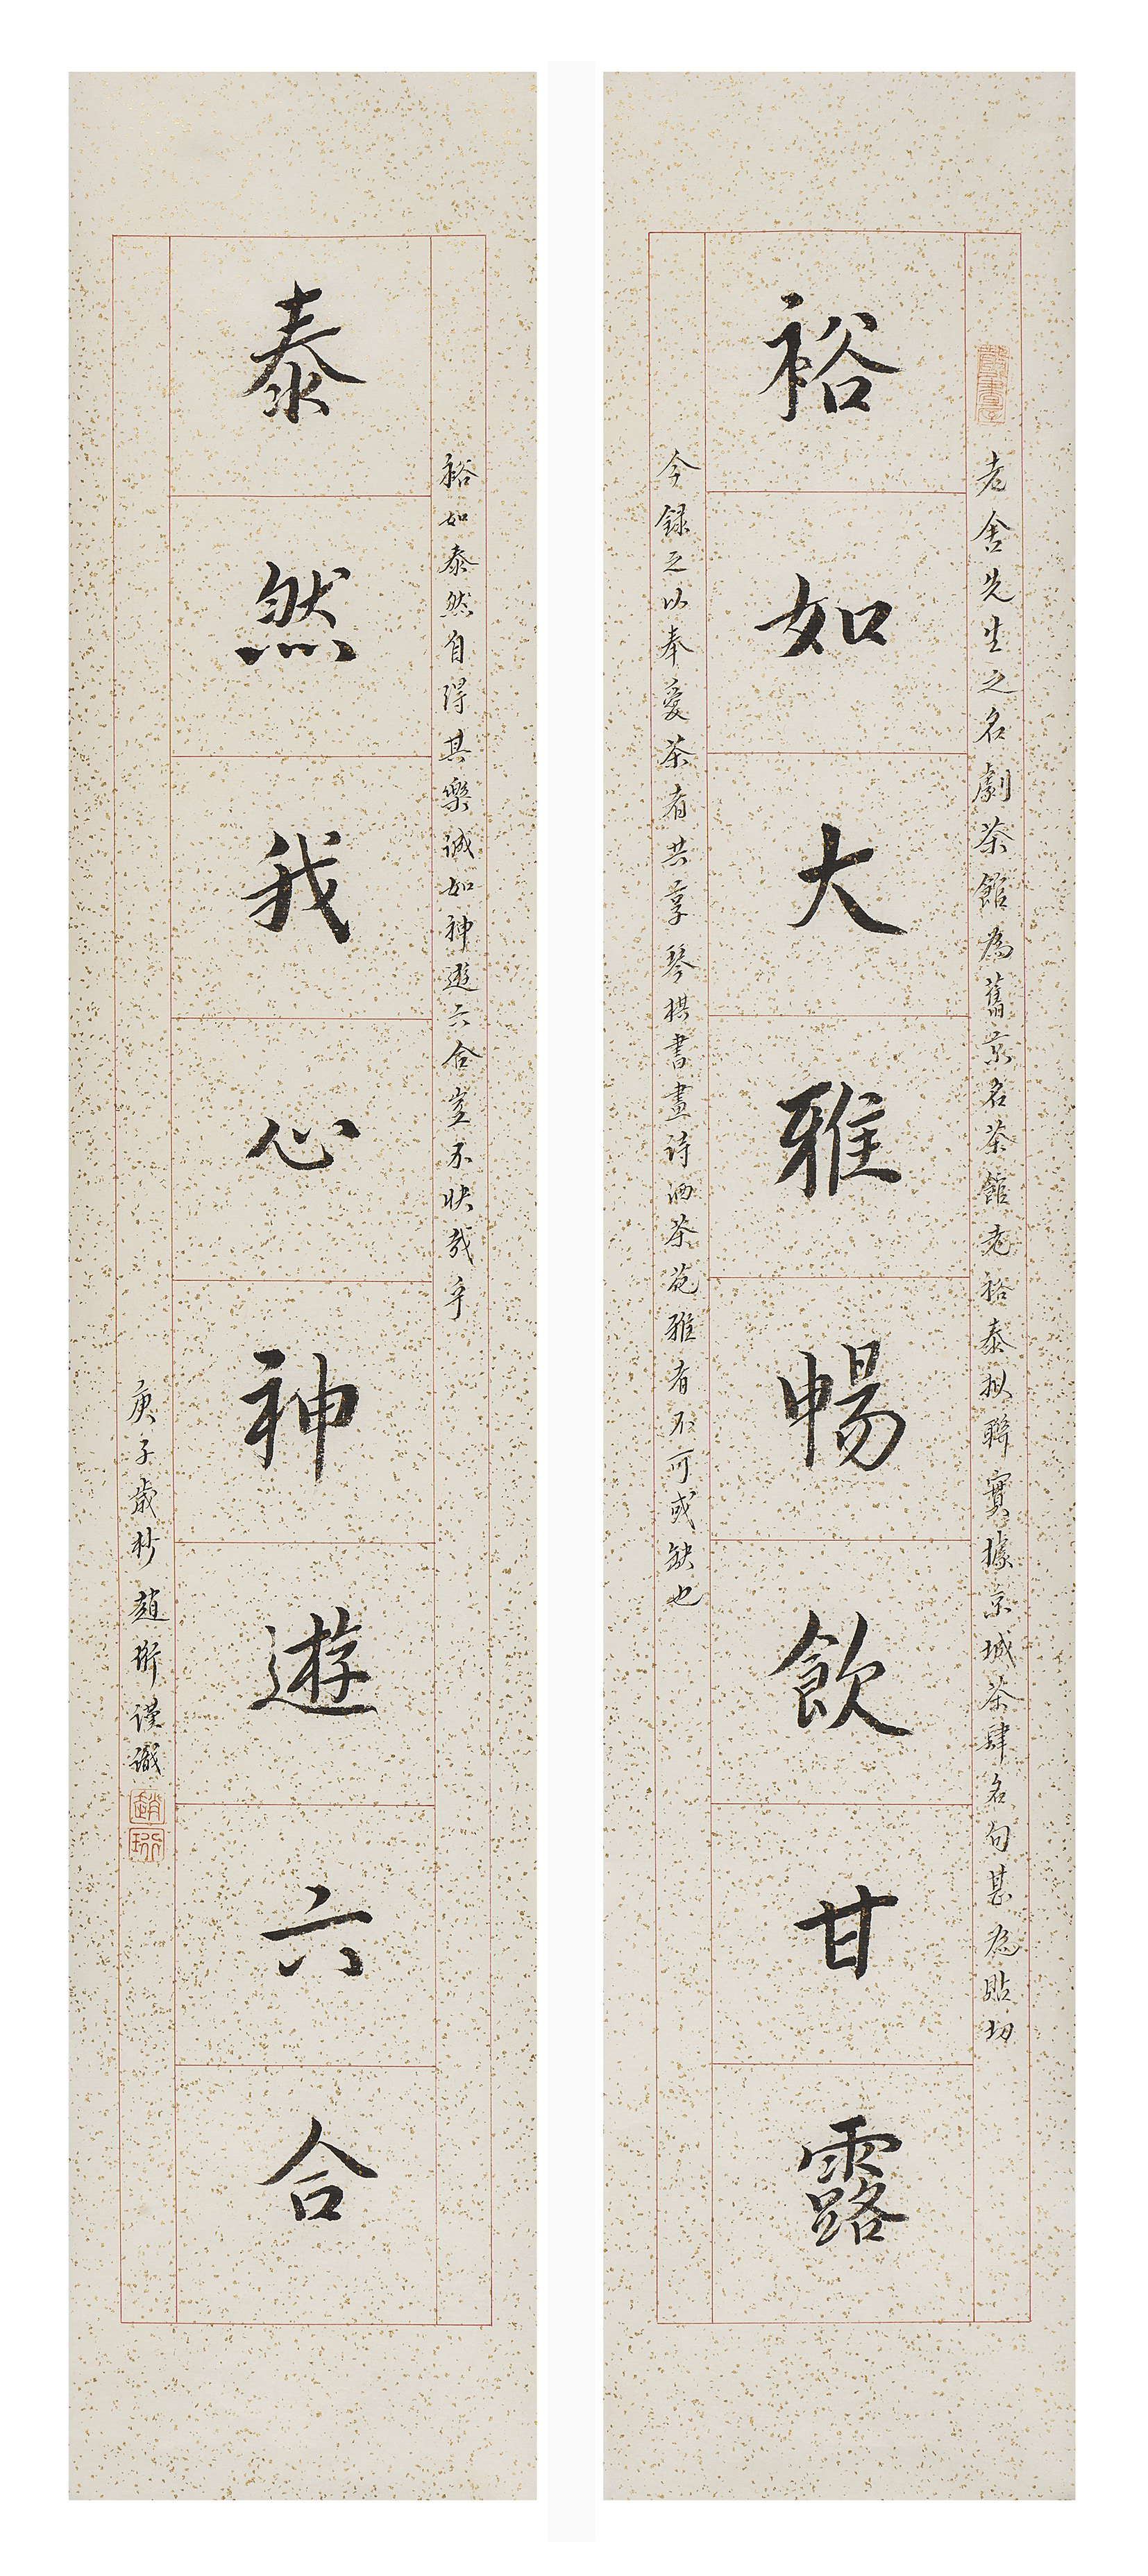 老舍先生之名劇茶館為舊京名茶館老裕泰拟聯實據京城茶肆名句甚為貼切
裕如大雅暢飲甘露
今録之以奉愛茶者共享琴棋書畫诗酒茶苑雅者不可或缺也
裕如泰然自得其樂诚如神遊六合豈不快哉
泰然我心神遊六合
庚子歲杪趙珩謹識
趙珩